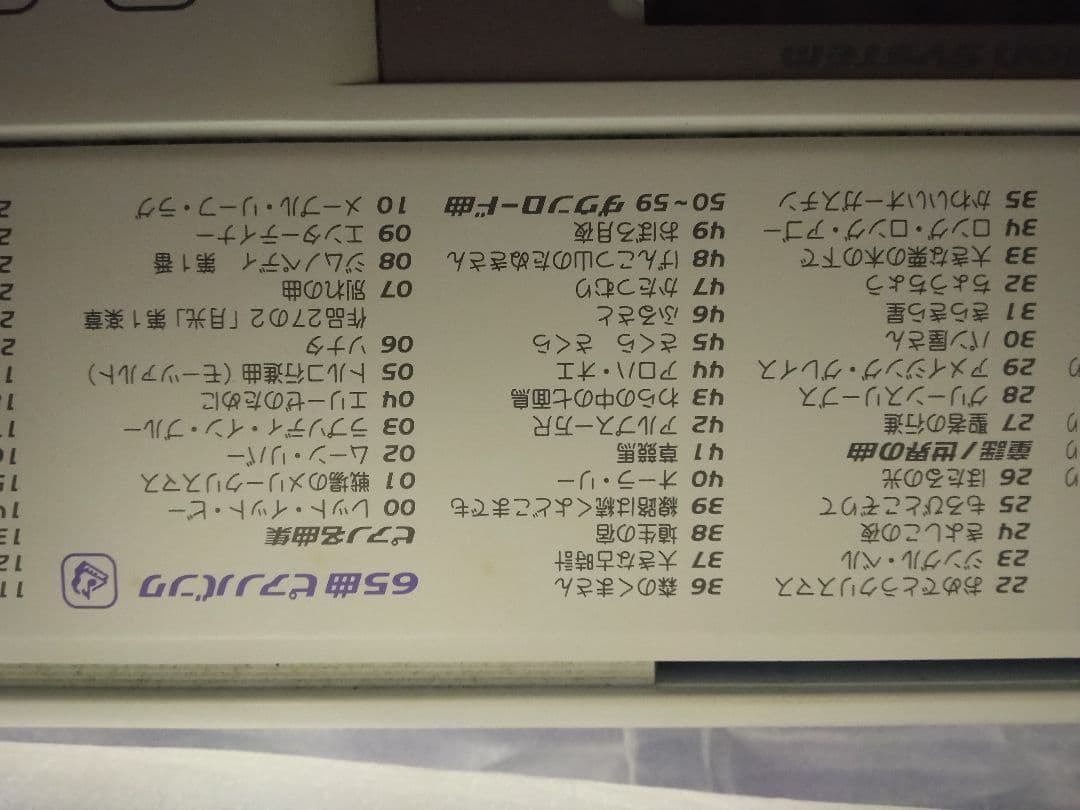 22 おめでとうクリスマス
23 ジングル・ベル
24 きよしこの夜
25 もろびとこぞりて
26 ほたるの光
童謡／世界の曲
27 聖者の行進
28 グリーンスリーブス
29 アメイジング・グレイス
30 パン屋さん
31 きらきら星
32 ちょうちょう
33 大きな栗の木の下で
34 ロング・ロング・アゴー
35 かわいいオーガスチン
36 森のくまさん
37 大きな古時計
38 埴生の宿
39 線路は続くよどこまでも
40 オーラ・リー
41 草競馬
42 アルプス一万尺
43 わらの中の七面鳥
44 アロハ・オエ
45 さくら さくら
46 ふるさと
47 かたつむり
48 げんこつ山のたぬきさん
49 おぼろ月夜
50～59 ダウンロード曲
65曲ピアノバンク
ピアノ名曲集
00 レット・イット・ビー
01 戦場のメリークリスマス
02 ムーン・リバー
03 ラプソディ・イン・ブルー
04 エリーゼのために
05 トルコ行進曲（モーツァルト）
06 ソナタ
作品27の2「月光」第1楽章
07 別れの曲
08 ジムノペディ 第1番
09 エンターティナー
10 メープル・リーフ・ラグ
11
12
13
SYSTEM